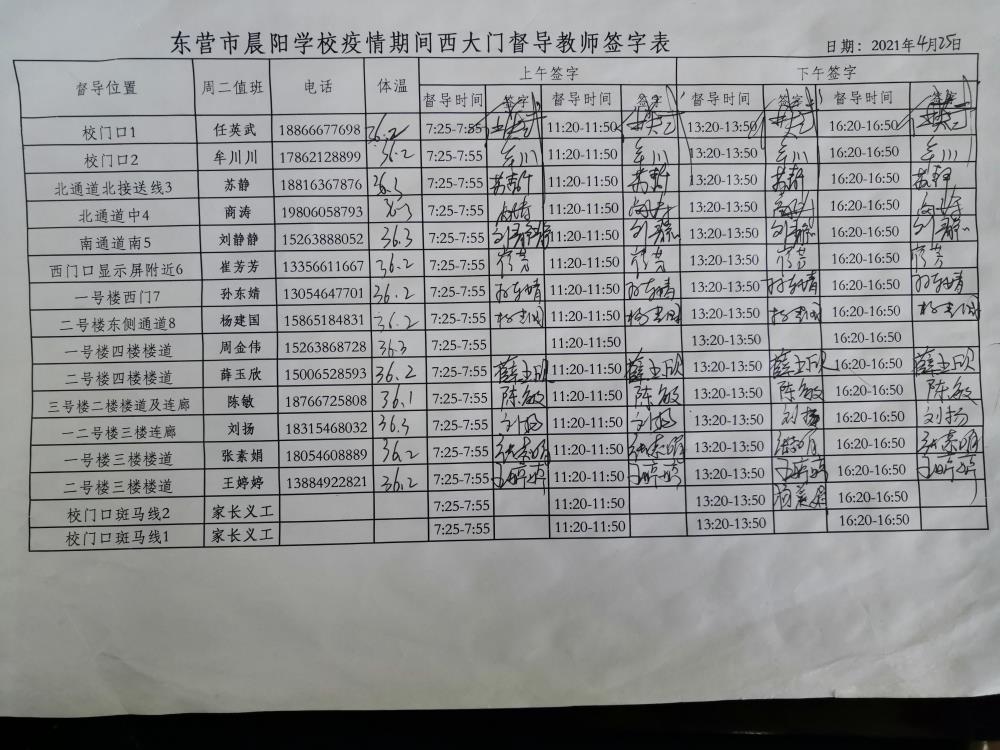 东营市晨阳学校疫情期间西大门督导教师签字表
日期：2021年4月25日
督导位置 周二值班 电话 体温 上午签字 下午签字
督导时间 签字 督导时间 签字 督导时间 签字 督导时间 签字
校门口1 任英武 18866677698 36.2 7:25-7:55 11:20-11:50 13:20-13:50 16:20-16:50
校门口2 牟川川 17862128899 36.2 7:25-7:55 牟川 11:20-11:50 牟川 13:20-13:50 牟川 16:20-16:50 牟川
北通道北接送线3 苏静 18816367876 36.3 7:25-7:55 苏静 11:20-11:50 苏静 13:20-13:50 苏静 16:20-16:50 苏静
北通道中4 商涛 19806058793 36.3 7:25-7:55 商涛 11:20-11:50 商涛 13:20-13:50 商涛 16:20-16:50 商涛
南通道南5 刘静静 15263888052 36.3 7:25-7:55 刘静静 11:20-11:50 刘静 13:20-13:50 刘静 16:20-16:50 刘静
西门口显示屏附近6 崔芳芳 13356611667 36.2 7:25-7:55 崔芳 11:20-11:50 崔芳 13:20-13:50 崔芳 16:20-16:50 崔芳
一号楼西门7 孙东婧 13054647701 36.2 7:25-7:55 孙东婧 11:20-11:50 孙东婧 13:20-13:50 孙东婧 16:20-16:50 孙东婧
二号楼东侧通道8 杨建国 15865184831 36.2 7:25-7:55 杨建国 11:20-11:50 杨建国 13:20-13:50 杨建国 16:20-16:50 杨建国
一号楼四楼楼道 周金伟 15263868728 36.3 7:25-7:55 11:20-11:50 13:20-13:50 16:20-16:50
二号楼四楼楼道 薛玉欣 15006528593 36.2 7:25-7:55 薛玉欣 11:20-11:50 薛玉欣 13:20-13:50 薛玉欣 16:20-16:50 薛玉欣
三号楼二楼楼道及连廊 陈敏 18766725808 36.1 7:25-7:55 陈敏 11:20-11:50 陈敏 13:20-13:50 陈敏 16:20-16:50 陈敏
一二号楼三楼连廊 刘扬 18315468032 36.3 7:25-7:55 刘扬 11:20-11:50 刘扬 13:20-13:50 刘扬 16:20-16:50 刘扬
一号楼三楼楼道 张素娟 18054608889 36.2 7:25-7:55 张素娟 11:20-11:50 张素娟 13:20-13:50 张素娟 16:20-16:50 张素娟
二号楼三楼楼道 王婷婷 13884922821 36.2 7:25-7:55 王婷婷 11:20-11:50 王婷婷 13:20-13:50 王婷婷 16:20-16:50 王婷婷
校门口斑马线2 家长义工 7:25-7:55 11:20-11:50 13:20-13:50 16:20-16:50
校门口斑马线1 家长义工 7:25-7:55 11:20-11:50 13:20-13:50 16:20-16:50